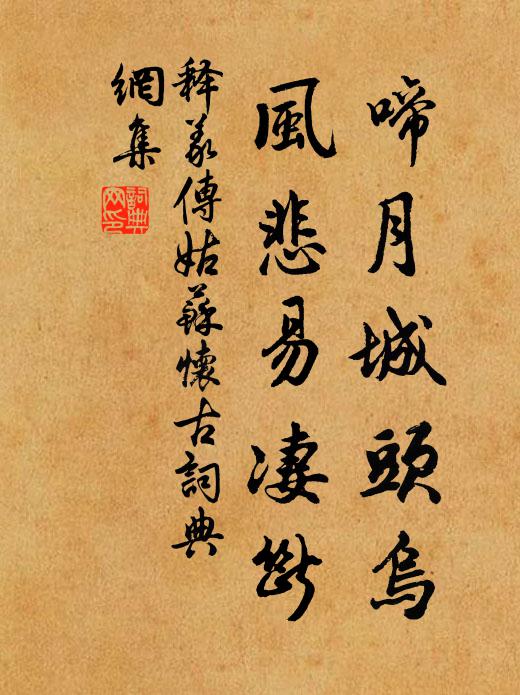 啼月城頭烏
風悲易淒斷
释義傳姑蘇懷古詞典
網集
詞典
网印